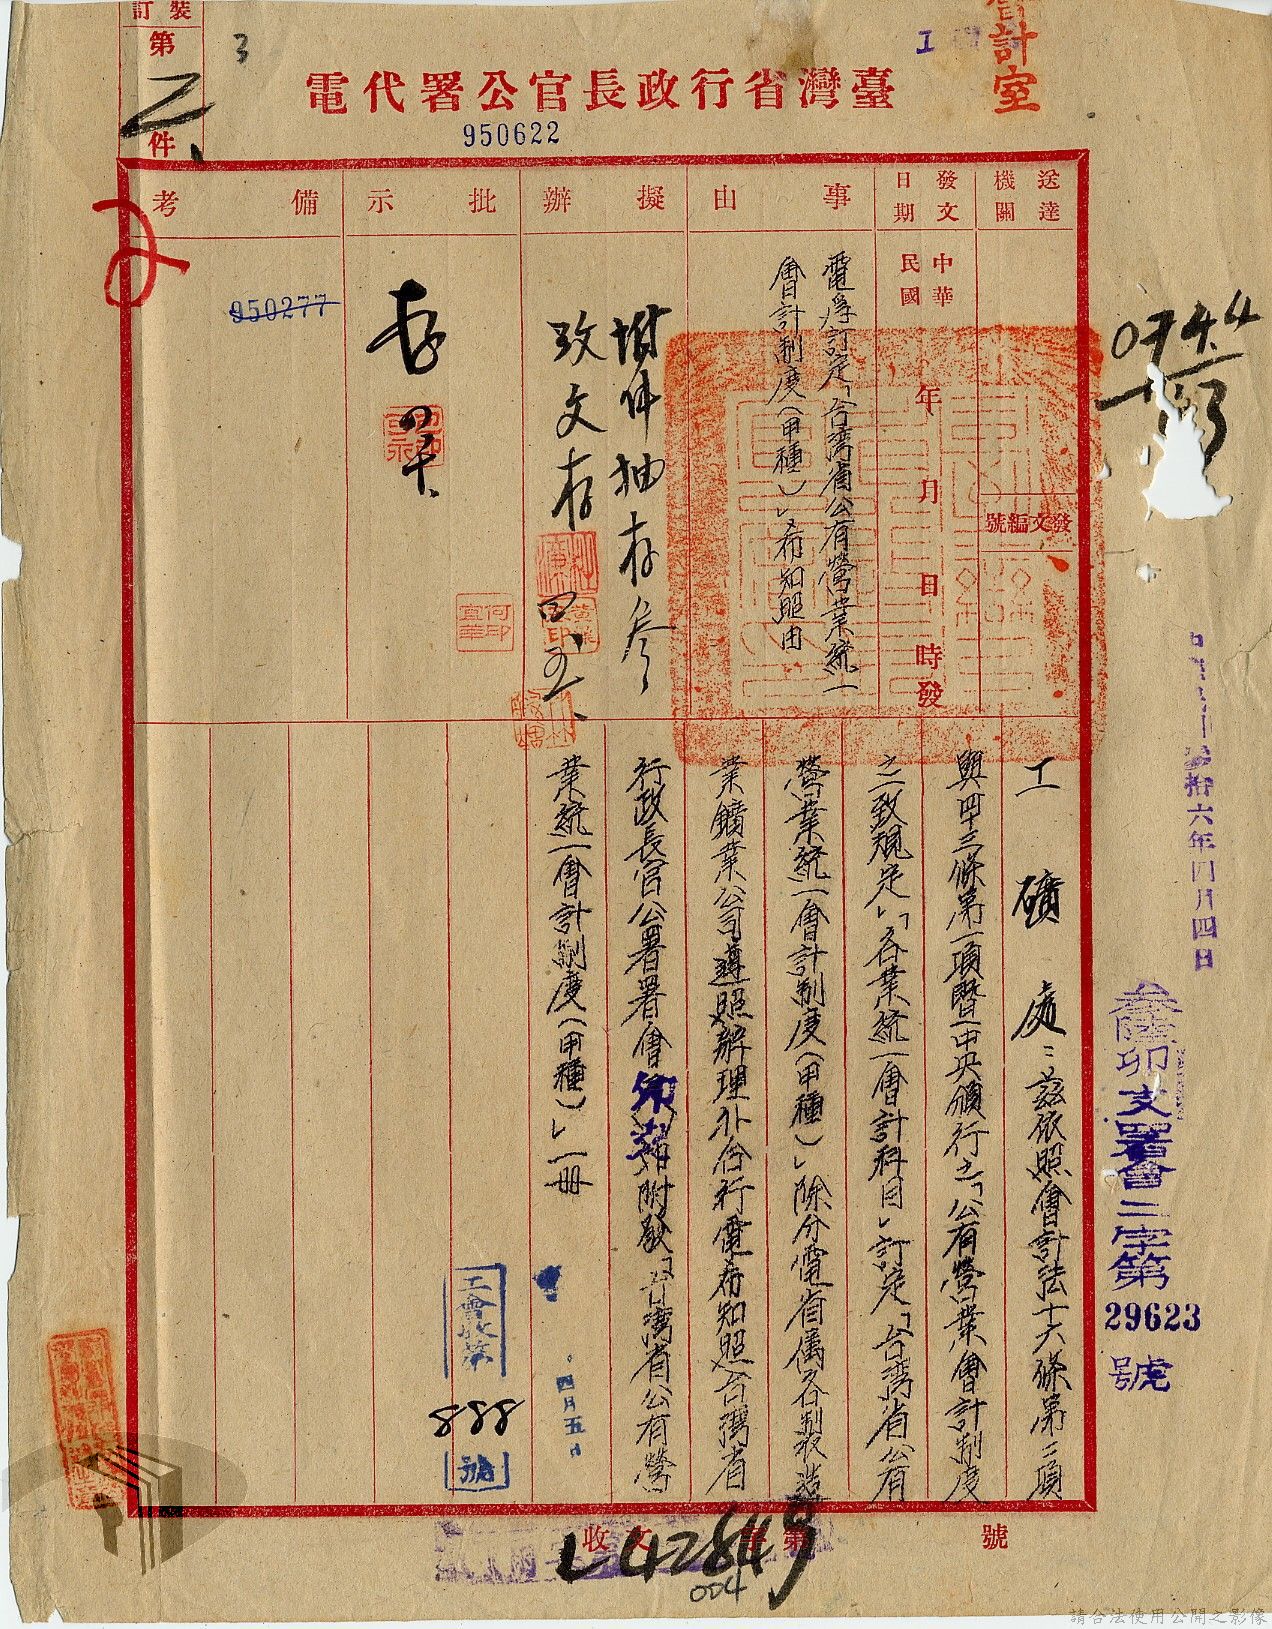 裝訂
第
乙
件
3
I
會計室
臺灣省行政長官公署代電
950622
送達機關
發文日期
事由
擬辦
批示
備考
中華民國 年 月 日 時發
發文編號
電為訂定「台湾省公有營業統一
會計制度(甲種)」希知照由
附件抽存參
攷文存
四、五、
存
950277
工礦處:茲依照會計法十六條第二項
與四十三條第一項暨中央頒行之「公有營業會計制度
之一致規定」、「各業統一會計科目」訂定「台湾省公有
營業統一會計制度(甲種)」除分電省屬各製造
業鑛業公司遵照辦理外合行電希知照台灣省
行政長官公署署會
附發「台湾省公有營
業統一會計制度(甲種)」一冊
拾六年四月四日
卯支署會二字第
29623
號
工會收第
888
號
四月五日
收文 字第 號
42849
004
請合法使用公開之影像